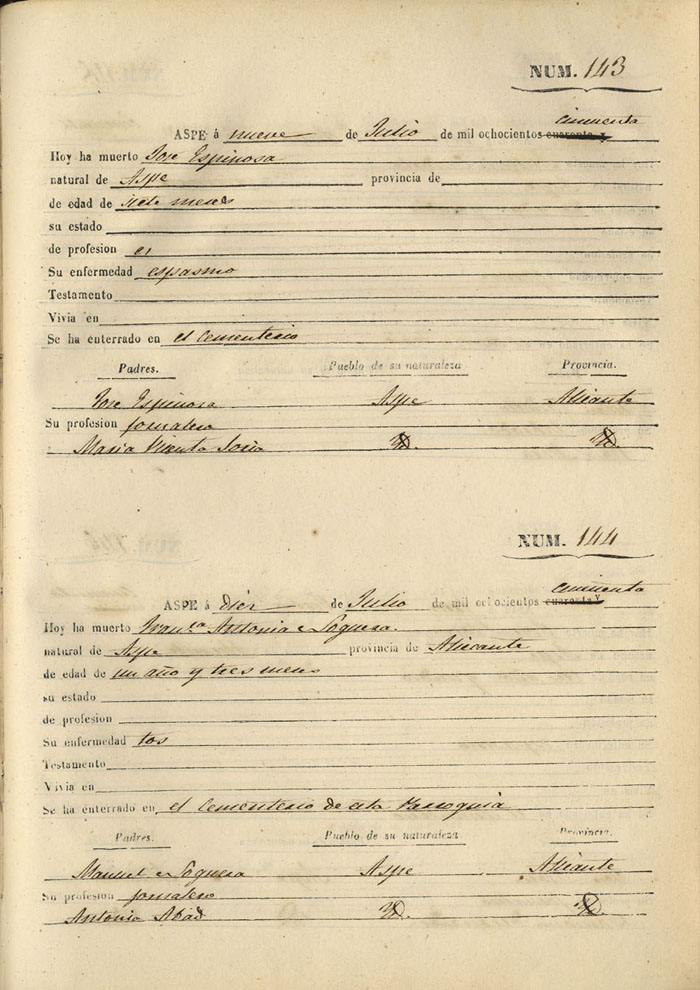 NUM. 143
cincuenta
ASPE á nueve de Julio de mil ochocientos cuarenta y
Hoy ha muerto Jose Espinosa
natural de Aspe provincia de
de edad de siete meses
su estado
de profesion
Su enfermedad espasmo
Testamento
Vivia en
Se ha enterrado en el cementerio
Padres. Pueblo de su naturaleza Provincia.
Jose Espinosa Aspe Alicante
Su profesion jornalero
Maria Vicenta Soria
NUM. 144
cincuenta
ASPE á diez de Julio de mil ochocientos cuarenta y
Hoy ha muerto Fran.ca Antonia
natural de Aspe provincia de Alicante
de edad de un año y tres meses
su estado
de profesion
Su enfermedad tos
Testamento
Vivia en
Se ha enterrado en el Cementerio de esta Parroquia
Padres. Pueblo de su naturaleza Provincia.
Manuel Aspe Alicante
Su profesion jornalero
Antonia Abad